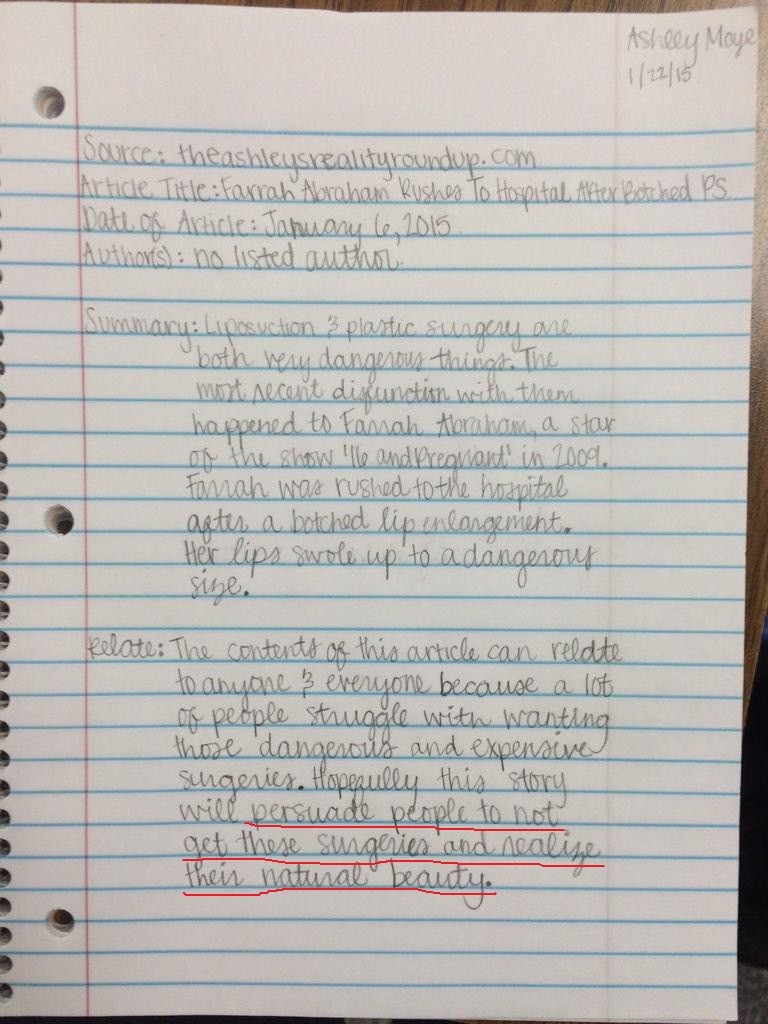 Ashley Moye
1/22/15
Source: theashleysrealityroundup.com
Article Title: Farrah Abraham Rushes To Hospital After Botched P.S.
Date of Article: January 6, 2015
Author(s): no listed author.
Summary: Liposuction & plastic surgery are
both very dangerous things. The
most recent disfunction with them
happened to Farrah Abraham, a star
of the show '16 and Pregnant' in 2009.
Farrah was rushed to the hospital
after a botched lip enlargement.
Her lips swole up to a dangerous
size.
Relate: The contents of this article can relate
to anyone & everyone because a lot
of people struggle with wanting
those dangerous and expensive
surgeries. Hopefully this story
will persuade people to not
get these surgeries and realize
their natural beauty.